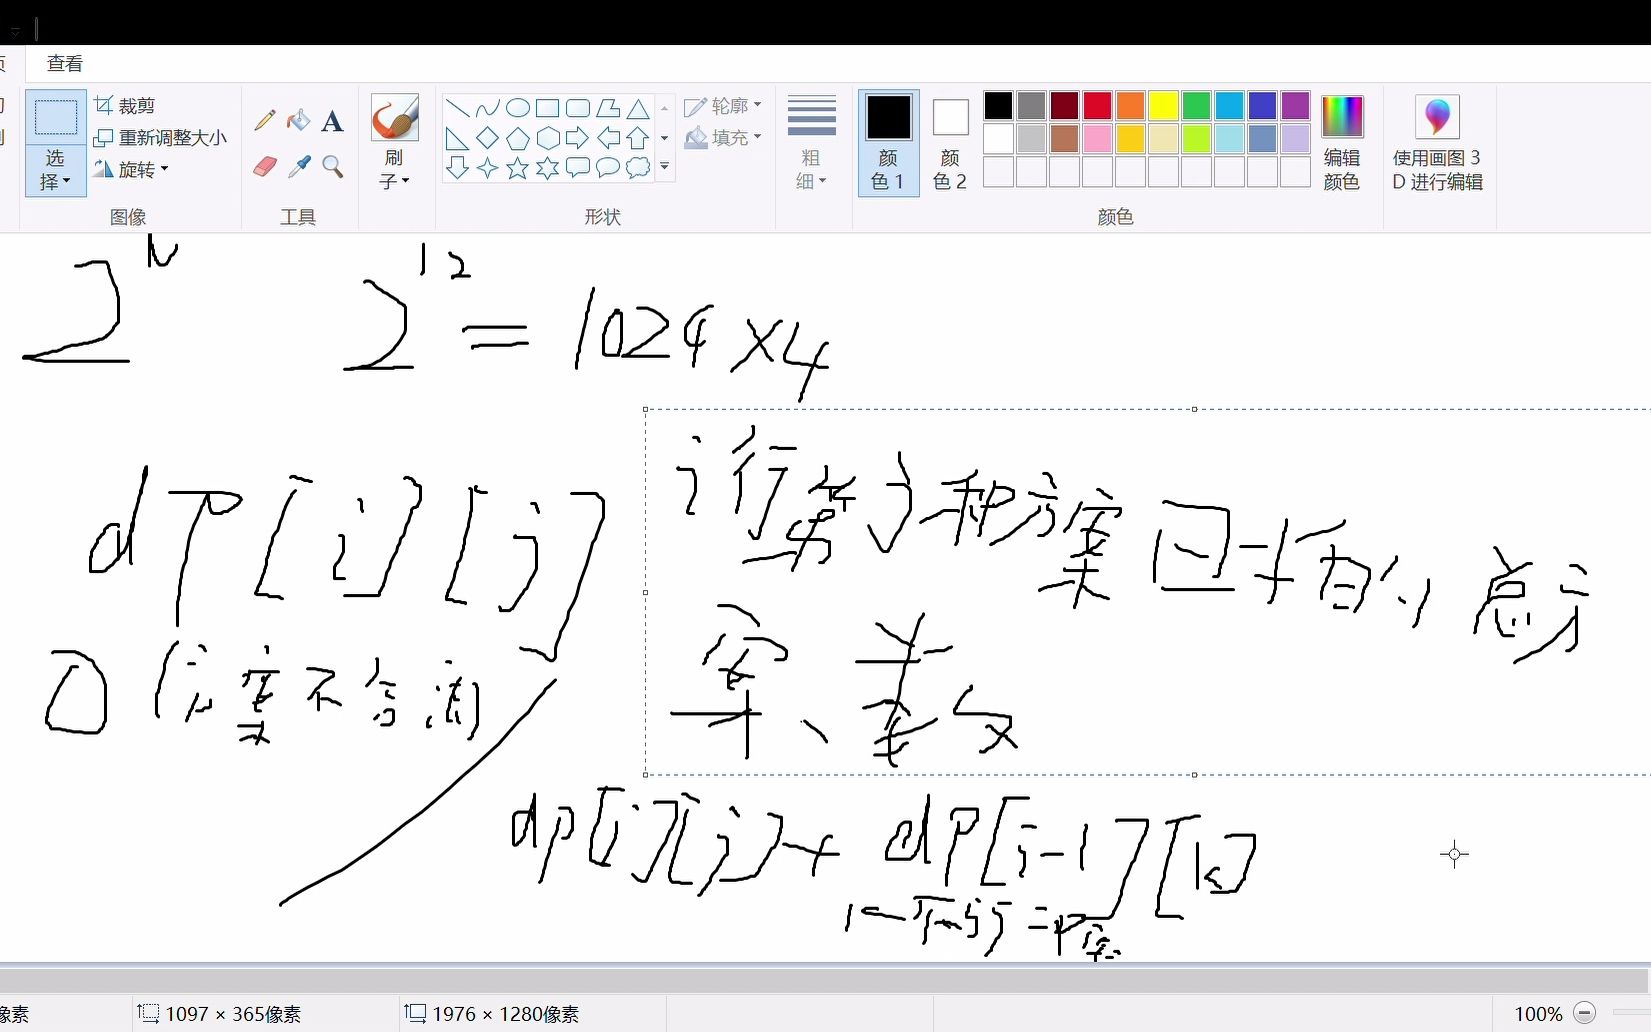 查看
裁剪
重新调整大小
旋转
选择
图像
工具
刷子
形状
轮廓
填充
粗细
颜色 1
颜色 2
颜色
编辑颜色
使用画图 3D 进行编辑
2^N 2^12 = 1024 × 4
dp[i][j]
i行 第j种方案
总方案
0 (方案不合法)
dp[i][j] + dp[i-1][k]
1097 × 365像素
1976 × 1280像素
100%